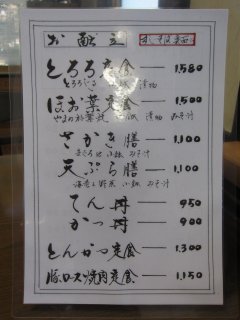 お献立
とろろ定食 1,580
とろろじる 漬物
ほお葉定食 1,500
漬物 みそ汁
さかき膳 1,100
小鉢 みそ汁
天ぷら膳 1,100
海老と野菜 小鉢 みそ汁
てん丼 950
かつ丼 900
とんかつ定食 1,300
豚ロース焼肉定食 1,150